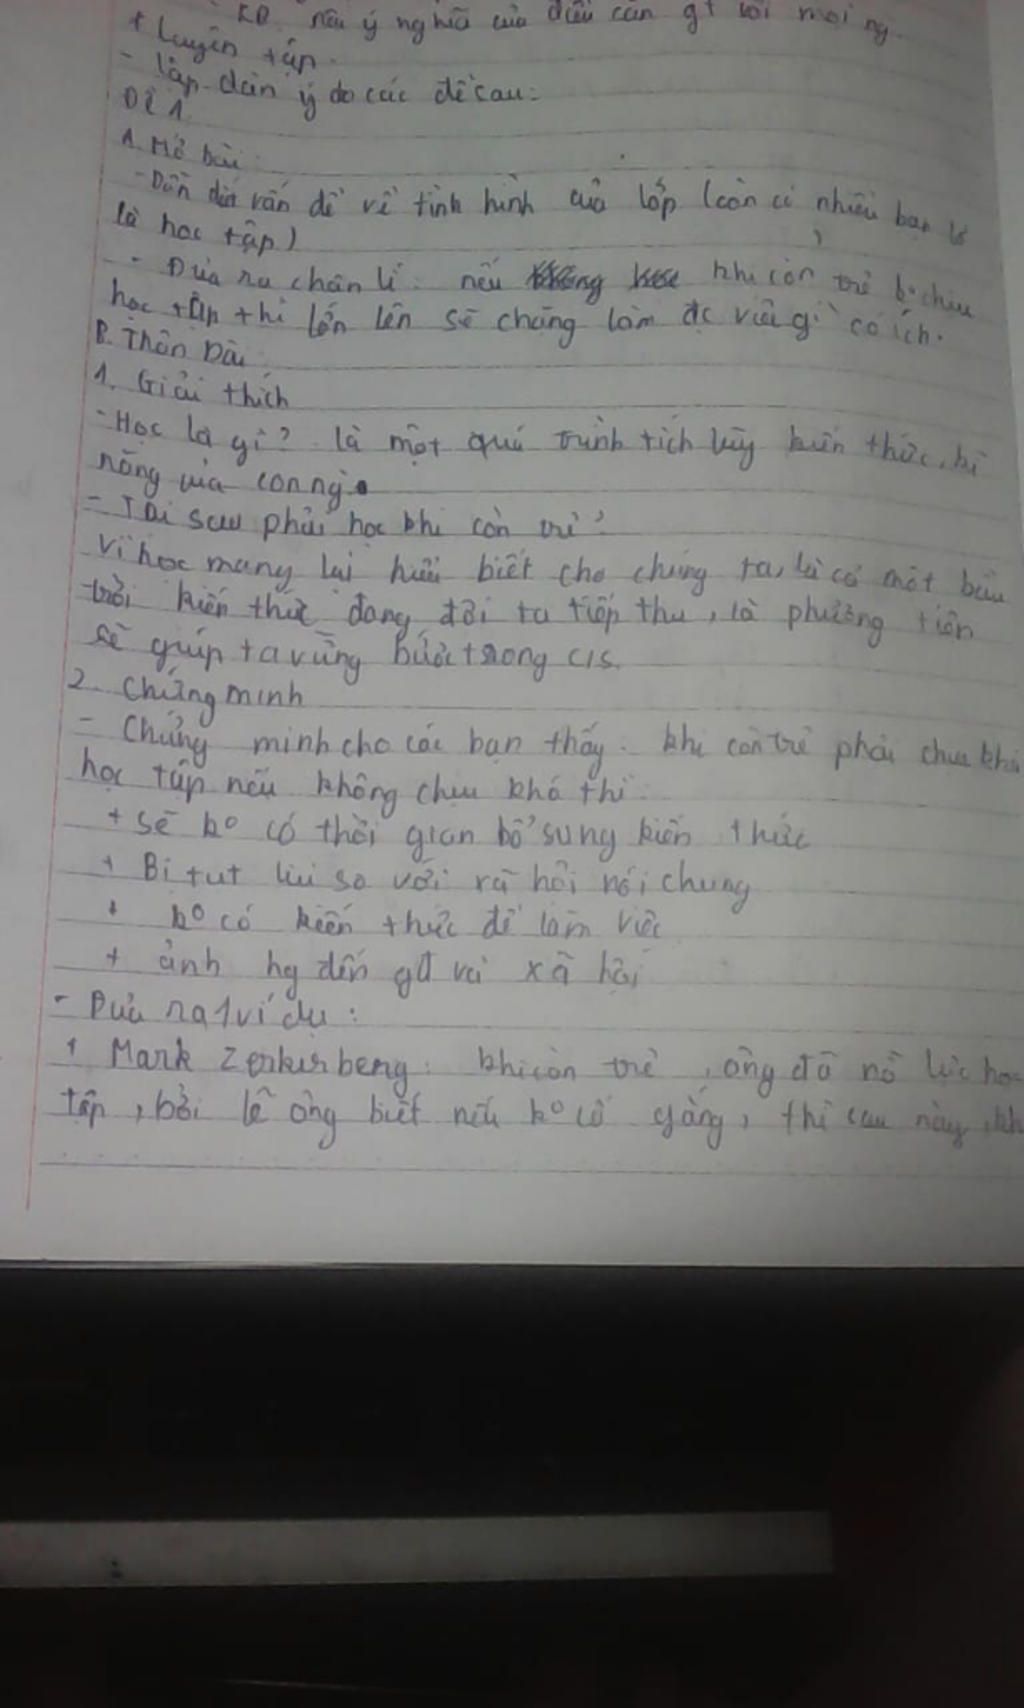 KB. nêu ý nghĩa của điều cần gt với mọi ng
+ Luyện tập.
- lập dàn ý do các đề sau:
Đề 1
A. Mở bài:
- Dẫn dắt vấn đề về tình hình của lớp (còn có nhiều bạn lơ
là học tập)
- Đưa ra chân lí: nếu khi còn trẻ ko chịu
học tập thì lớn lên sẽ chẳng làm đc việc gì có ích.
B. Thân bài:
1. Giải thích
- Học là gì? là một quá trình tích lũy kiến thức, kĩ
năng của con ng
- Tại sao phải học khi còn trẻ?
Vì học mang lại hiểu biết cho chúng ta, là cả một bầu
trời kiến thức đang đợi ta tiếp thu, là phương tiện
sẽ giúp ta vững bước trong c/s.
2. Chứng minh
- Chứng minh cho các bạn thấy: khi còn trẻ phải chịu khó
học tập nếu không chịu khó thì:
+ sẽ ko có thời gian bổ sung kiến thức
+ Bị tụt lùi so với xã hội nói chung
+ ko có kiến thức để làm việc
+ ảnh hg đến gđ và xã hội
- Đưa ra 1 ví dụ:
+ Mark Zerkirberg: khi còn trẻ, ông đã nỗ lực học
tập, bởi lẽ ông biết nếu ko cố gắng, thì sau này